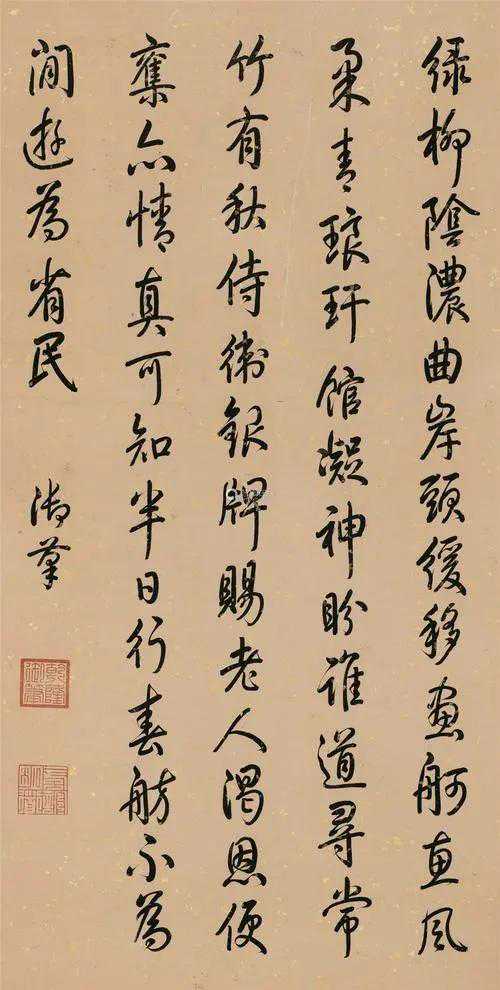 綠柳陰濃曲岸頭緩移畫舸惠風
柔青琅玕館凝神盼誰道尋常
竹有秋侍衛銀牌賜老人渴恩便
奪亦情真可知半日行春舫不為
閒遊為省民 御筆
乾隆御筆